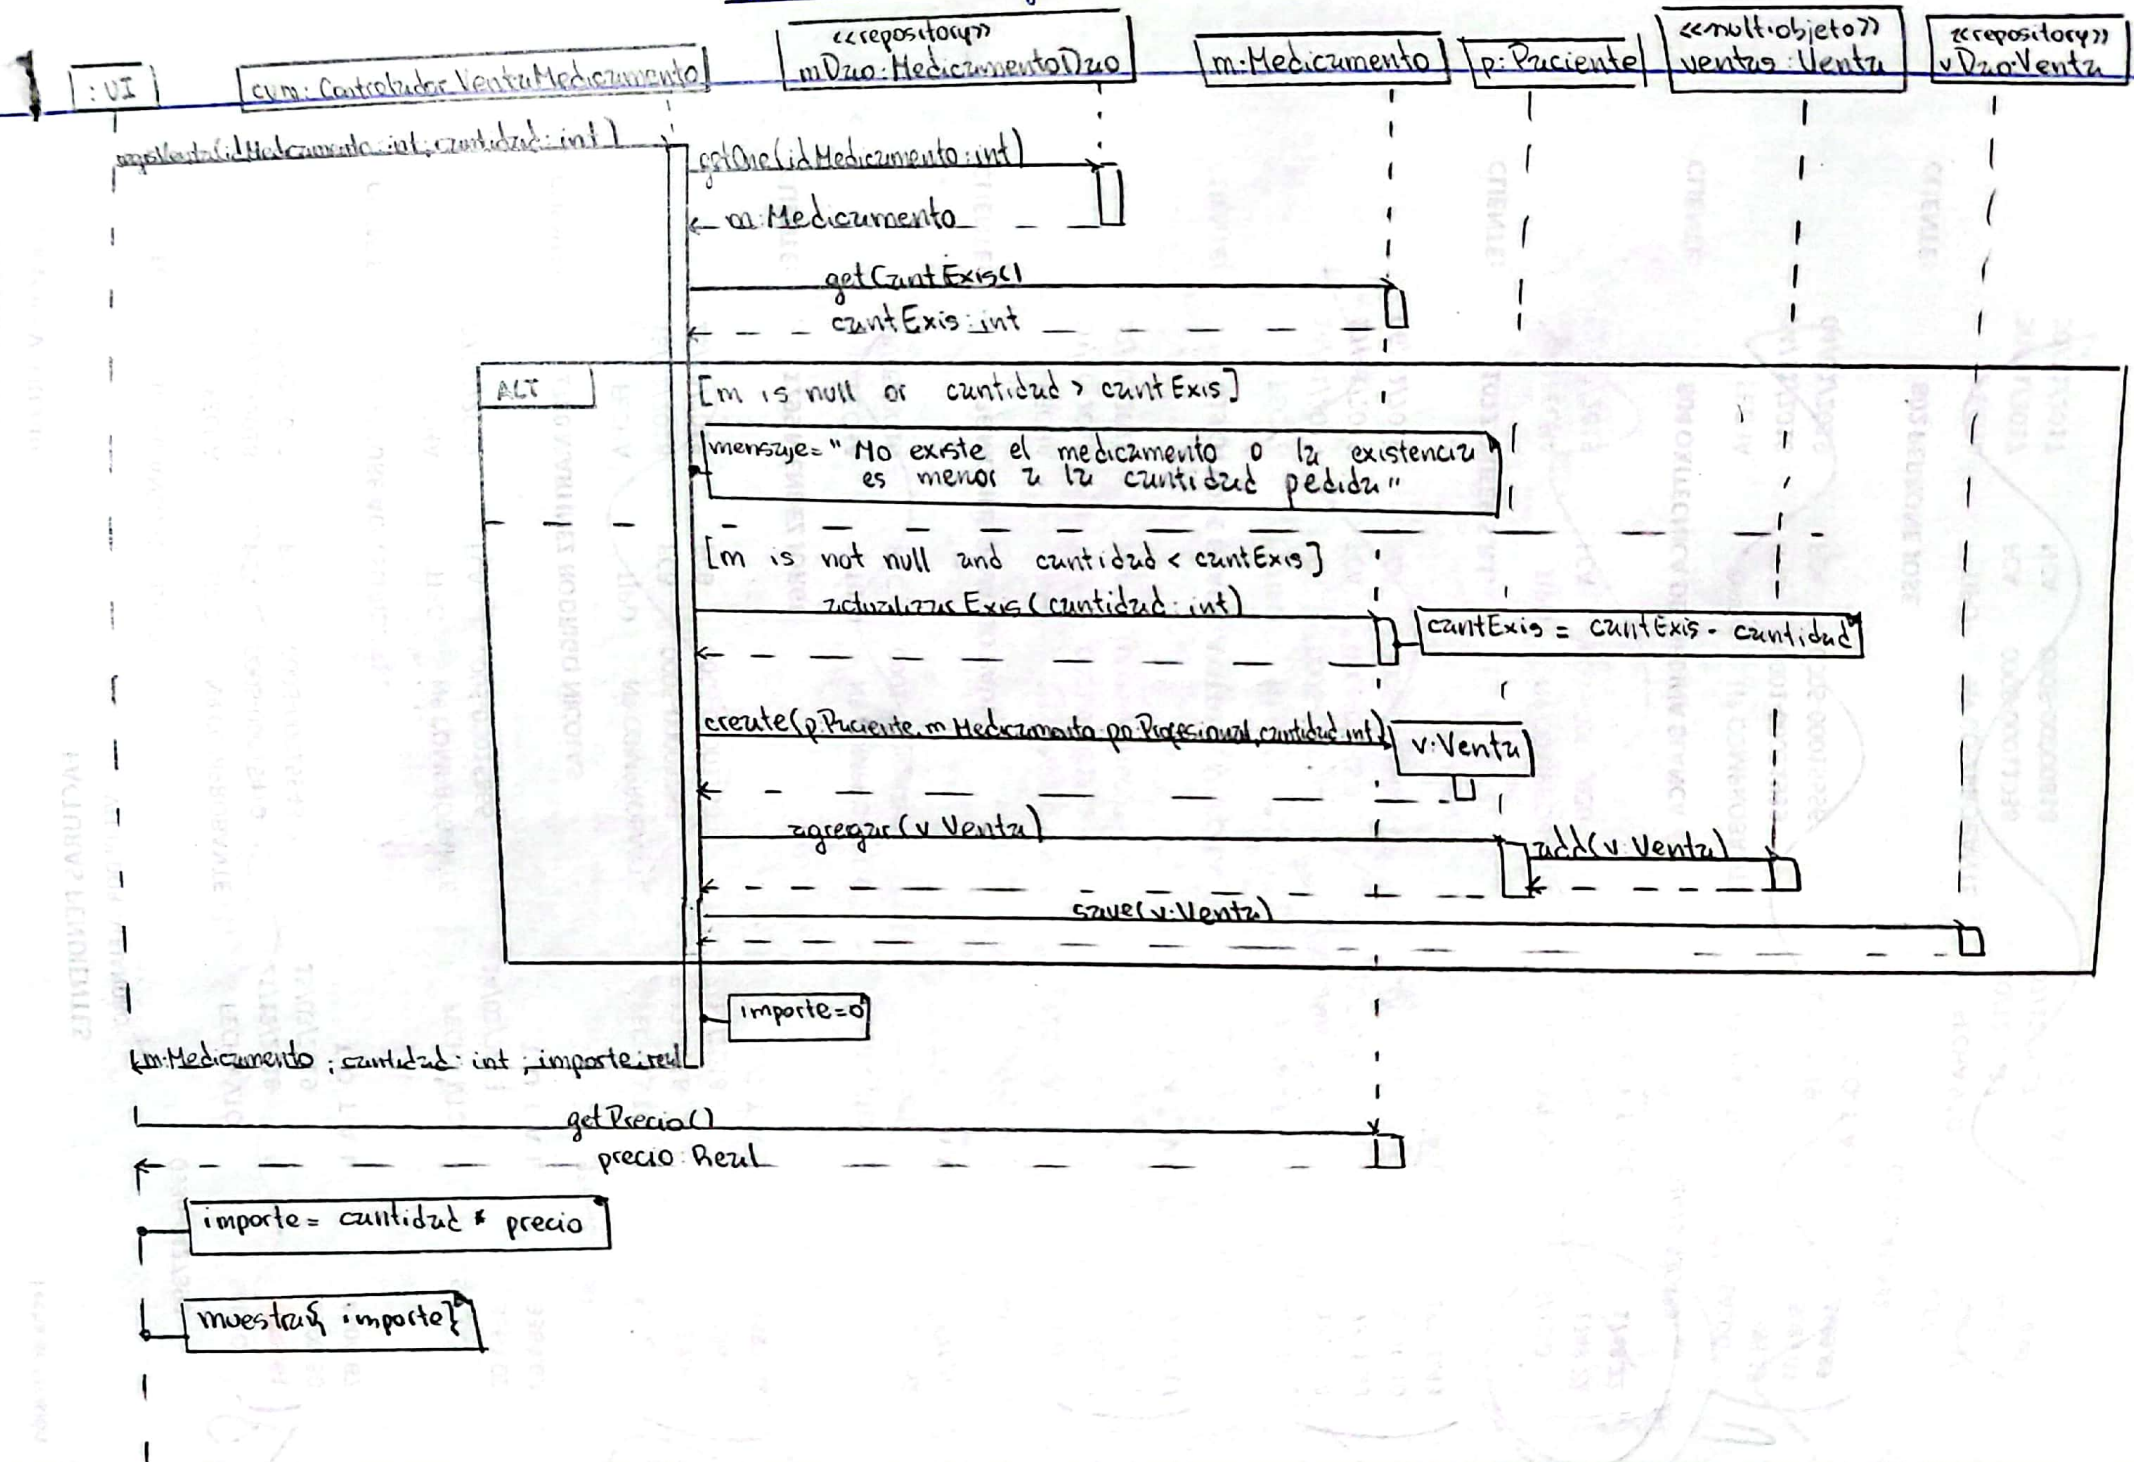 : UI
cvm: Controlador VentaMedicamento
<<repository>>
mDao: MedicamentoDao
m: Medicamento
p: Paciente
<<multiobjeto>>
ventas: Venta
<<repository>>
vDao: Venta
(idMedicamento: int; cantidad: int)
getOne(idMedicamento: int)
m: Medicamento
getCantExis()
cantExis: int
ALT
[m is null or cantidad > cantExis]
mensaje= "No existe el medicamento o la existencia
es menor a la cantidad pedida"
[m is not null and cantidad < cantExis]
actualizarExis(cantidad: int)
cantExis = cantExis - cantidad
create(p: Paciente, m: Medicamento, po: Profesional, cantidad: int)
v: Venta
agregar(v: Venta)
add(v: Venta)
save(v: Venta)
importe=0
m: Medicamento ; cantidad: int ; importe: real
getPrecio()
precio: Real
importe= cantidad * precio
muestra{ importe}